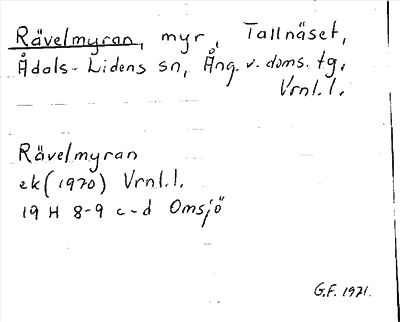 Rävelmyran, myr, Tallnäset,
Ådals-Lidens sn, Ång. v. doms. tg.
Vrnl.l.
Rävelmyran
ek (1970) Vrnl.l.
19 H 8-9 c-d Omsjö
G.F. 1971.